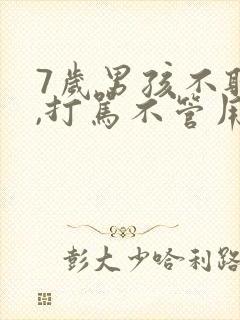 7歲男孩不
,打罵不管
彭大少哈利路